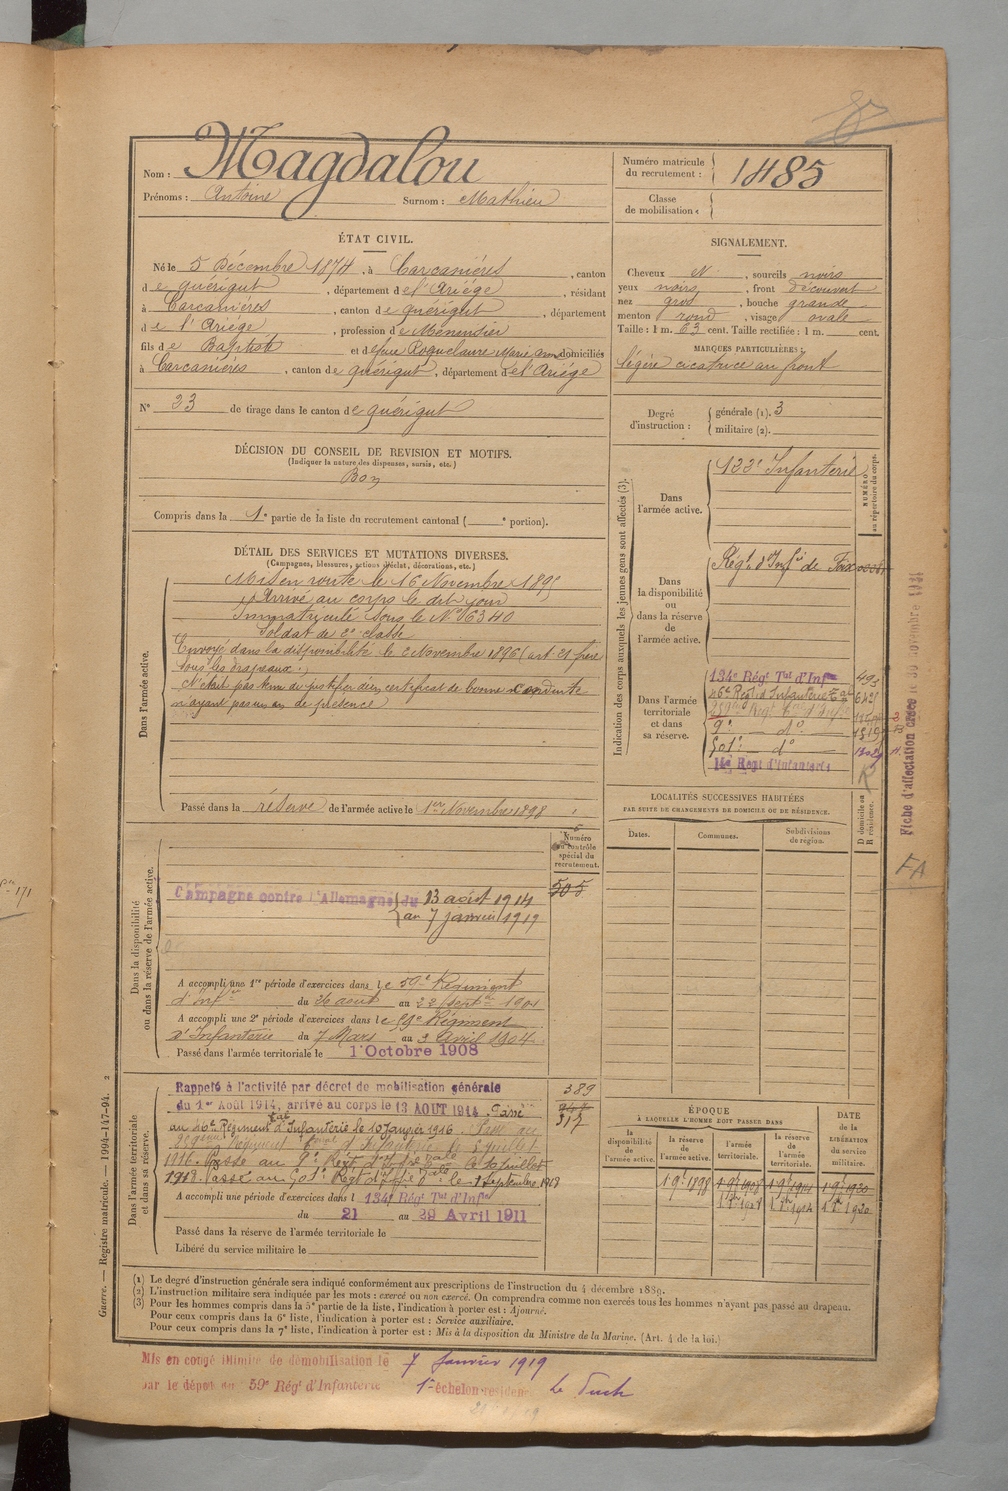 Nom : Magdalou
Prénoms : Antoine Surnom : Mathieu
Numéro matricule du recrutement : 1485
Classe de mobilisation :
ÉTAT CIVIL.
Né le 5 Décembre 1874, à Carcanières, canton
de quérigut, département de l'Ariége, résidant
à Carcanières, canton de quérigut, département
de l'Ariége, profession de Menensier
fils de Baptiste et de feue Roquelaure Marie domiciliés
à Carcanières, canton de quérigut, département de l'Ariége
N° 23 de tirage dans le canton de quérigut
SIGNALEMENT.
Cheveux N, sourcils noirs
yeux noirs, front découvert
nez gros, bouche grande
menton rond, visage ovale
Taille : 1 m. 63 cent. Taille rectifiée : 1 m. cent.
MARQUES PARTICULIÈRES :
légère cicatrice au front
Degré d'instruction : générale (1). 3
militaire (2).
DÉCISION DU CONSEIL DE REVISION ET MOTIFS.
(Indiquer la nature des dispenses, sursis, etc.)
Bon
Compris dans la 1e partie de la liste du recrutement cantonal ( e portion).
DÉTAIL DES SERVICES ET MUTATIONS DIVERSES.
(Campagnes, blessures, actions d'éclat, décorations, etc.)
Dans l'armée active.
Mis en route le 16 Novembre 189
Arrivé au corps le dit jour
Immatriculé sous le N° 6340
Soldat de 2e classe
Envoyé dans la disponibilité le 2 Novembre 1896 (art. 21 frère
sous les drapeaux.)
N'était pas tenu de justifier d'un certificat de bonne conduite
n'ayant pas un an de présence
Passé dans la réserve de l'armée active le 1er Novembre 1898
Indication des corps auxquels les jeunes gens sont affectés (3).
NUMÉRO au répertoire du corps.
Dans l'armée active.
133e Infanterie
Dans la disponibilité ou dans la réserve de l'armée active.
Régt d'Infie de Foix
Dans l'armée territoriale et dans sa réserve.
134e Régt Tal d'Infie
46e Regt d'Infanterie Tal
9e do
501e do
14e Régt d'Infanterie
Fiche d'affectation
FA
LOCALITÉS SUCCESSIVES HABITÉES
PAR SUITE DE CHANGEMENTS DE DOMICILE OU DE RÉSIDENCE.
Dates. Communes. Subdivisions de région. D domicile ou R résidence.
Dans la disponibilité ou dans la réserve de l'armée active.
Numéro au contrôle spécial du recrutement.
505
Campagne contre l'Allemagne du 13 août 1914
au 7 janvier 1919
A accompli une 1re période d'exercices dans le 59e Régiment
d'Infie du 26 août au 22 Septbre 1901
A accompli une 2e période d'exercices dans le 59e Régiment
d'Infanterie du 7 Mars au 3 Avril 1904
Passé dans l'armée territoriale le 1er Octobre 1908
Dans l'armée territoriale et dans sa réserve.
389
317
Rappelé à l'activité par décret de mobilisation générale
du 1er Août 1914, arrivé au corps le 13 AOUT 1914. Passé
au 46e Régiment tal d'Infanterie le 10 Janvier 1916. Passé au
1916. Passé au 9e Régt d'Infie tale le 10 juillet
1918. Passé au 501e Régt d'Infie tale le 1 Septembre 1918
A accompli une période d'exercices dans l 134e Régt Tal d'Infie
du 21 au 29 Avril 1911
Passé dans la réserve de l'armée territoriale le
Libéré du service militaire le
ÉPOQUE
À LAQUELLE L'HOMME DOIT PASSER DANS
la disponibilité de l'armée active. la réserve de l'armée active. l'armée territoriale. la réserve de l'armée territoriale.
DATE de la LIBÉRATION du service militaire.
1 9bre 1898
(1) Le degré d'instruction générale sera indiqué conformément aux prescriptions de l'instruction du 4 décembre 1889.
(2) L'instruction militaire sera indiquée par les mots : exercé ou non exercé. On comprendra comme non exercés tous les hommes n'ayant pas passé au drapeau.
(3) Pour les hommes compris dans la 5e partie de la liste, l'indication à porter est : Ajourné.
Pour ceux compris dans la 6e liste, l'indication à porter est : Service auxiliaire.
Pour ceux compris dans la 7e liste, l'indication à porter est : Mis à la disposition du Ministre de la Marine. (Art. 4 de la loi.)
Guerre. — Registre matricule. — 1994-147-94. 2
Mis en congé illimité de démobilisation le 7 Janvier 1919
par le dépôt du 59e Régt d'Infanterie 1er échelon